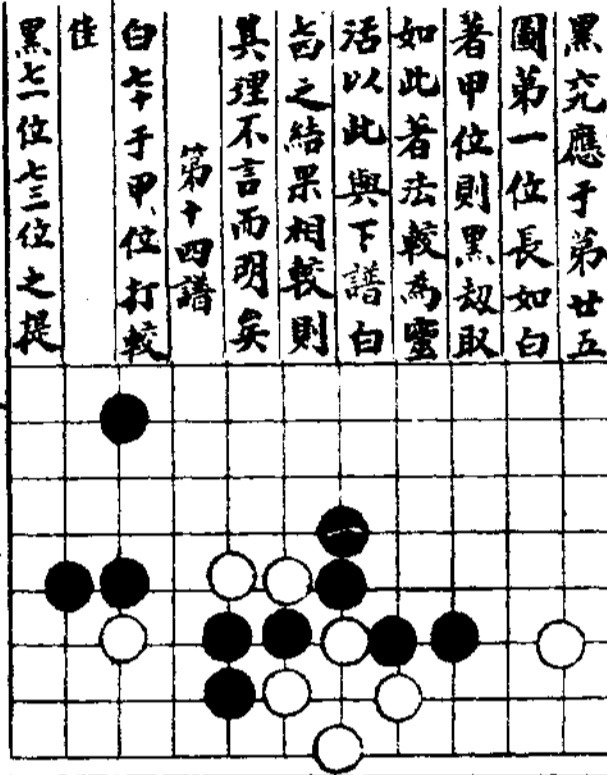 黑六九應于第廿五
圖第一位長如白
著甲位則黑劫取
如此著法較為靈
活以此與下譜白
七四之結果相較則
其理不言而明矣
第十四譜
白七十于甲位打較
佳
黑七一位七三位之提